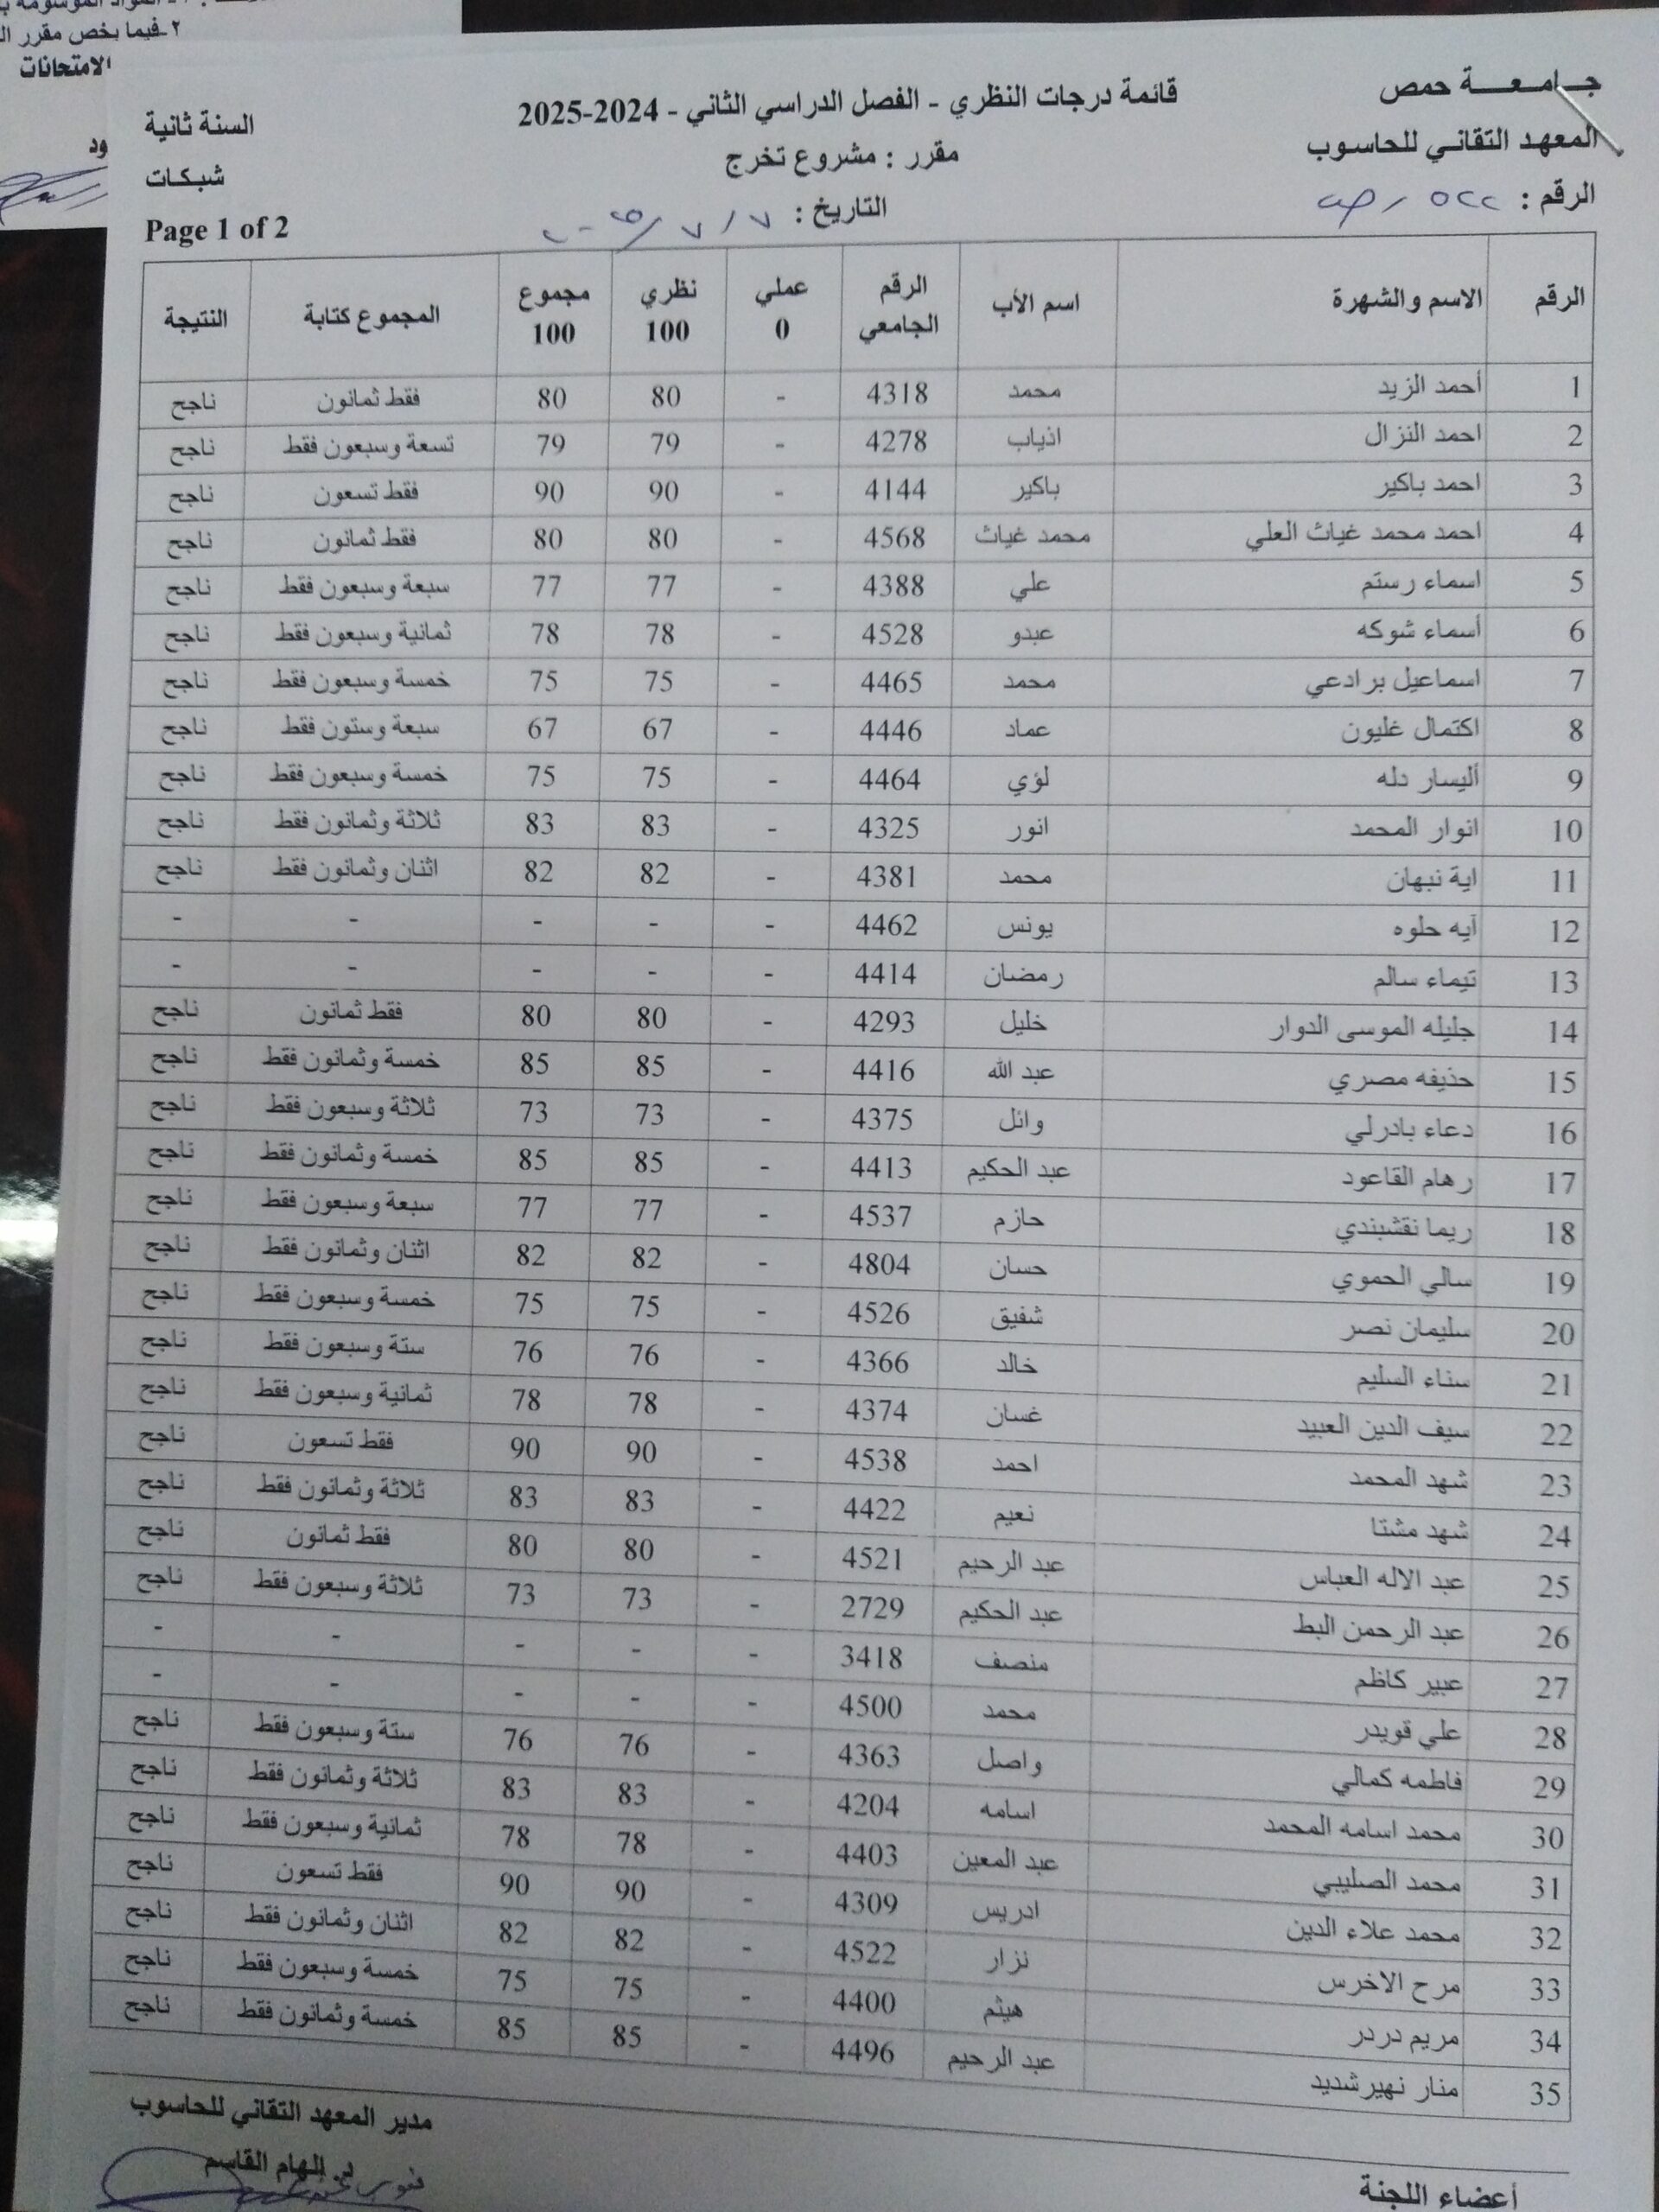 ٢ـفيما يخص مقرر
الامتحانات
جـــامـعــــة حمص
المعهد التقاني للحاسوب
الرقم : ٥٢٢ / ص
قائمة درجات النظري - الفصل الدراسي الثاني - 2024-2025
مقرر : مشروع تخرج
التاريخ : ٧ / ٧ / ٢٠٢٥
السنة ثانية
شبكات
Page 1 of 2
الرقم الاسم والشهرة اسم الأب الرقم الجامعي عملي 0 نظري 100 مجموع 100 المجموع كتابة النتيجة
1 أحمد الزيد محمد 4318 - 80 80 فقط ثمانون ناجح
2 احمد النزال اذياب 4278 - 79 79 تسعة وسبعون فقط ناجح
3 احمد باكير باكير 4144 - 90 90 فقط تسعون ناجح
4 احمد محمد غياث العلي محمد غياث 4568 - 80 80 فقط ثمانون ناجح
5 اسماء رستم علي 4388 - 77 77 سبعة وسبعون فقط ناجح
6 أسماء شوكه عبدو 4528 - 78 78 ثمانية وسبعون فقط ناجح
7 اسماعيل برادعي محمد 4465 - 75 75 خمسة وسبعون فقط ناجح
8 اكتمال غليون عماد 4446 - 67 67 سبعة وستون فقط ناجح
9 أليسار دله لؤي 4464 - 75 75 خمسة وسبعون فقط ناجح
10 انوار المحمد انور 4325 - 83 83 ثلاثة وثمانون فقط ناجح
11 اية نبهان محمد 4381 - 82 82 اثنان وثمانون فقط ناجح
12 آيه حلوه يونس 4462 - - - - -
13 تيماء سالم رمضان 4414 - - - - -
14 جليله الموسى الدوار خليل 4293 - 80 80 فقط ثمانون ناجح
15 حذيفه مصري عبد الله 4416 - 85 85 خمسة وثمانون فقط ناجح
16 دعاء بادرلي وائل 4375 - 73 73 ثلاثة وسبعون فقط ناجح
17 رهام القاعود عبد الحكيم 4413 - 85 85 خمسة وثمانون فقط ناجح
18 ريما نقشبندي حازم 4537 - 77 77 سبعة وسبعون فقط ناجح
19 سالي الحموي حسان 4804 - 82 82 اثنان وثمانون فقط ناجح
20 سليمان نصر شفيق 4526 - 75 75 خمسة وسبعون فقط ناجح
21 سناء السليم خالد 4366 - 76 76 ستة وسبعون فقط ناجح
22 سيف الدين العبيد غسان 4374 - 78 78 ثمانية وسبعون فقط ناجح
23 شهد المحمد احمد 4538 - 90 90 فقط تسعون ناجح
24 شهد مشتا نعيم 4422 - 83 83 ثلاثة وثمانون فقط ناجح
25 عبد الاله العباس عبد الرحيم 4521 - 80 80 فقط ثمانون ناجح
26 عبد الرحمن البط عبد الحكيم 2729 - 73 73 ثلاثة وسبعون فقط ناجح
27 عبير كاظم منصف 3418 - - - - -
28 علي قويدر محمد 4500 - - - - -
29 فاطمه كمالي واصل 4363 - 76 76 ستة وسبعون فقط ناجح
30 محمد اسامه المحمد اسامه 4204 - 83 83 ثلاثة وثمانون فقط ناجح
31 محمد الصليبي عبد المعين 4403 - 78 78 ثمانية وسبعون فقط ناجح
32 محمد علاء الدين ادريس 4309 - 90 90 فقط تسعون ناجح
33 مرح الاخرس نزار 4522 - 82 82 اثنان وثمانون فقط ناجح
34 مريم دردر هيثم 4400 - 75 75 خمسة وسبعون فقط ناجح
35 منار نهيرشديد عبد الرحيم 4496 - 85 85 خمسة وثمانون فقط ناجح
أعضاء اللجنة
مدير المعهد التقاني للحاسوب
د. إلهام القاسم